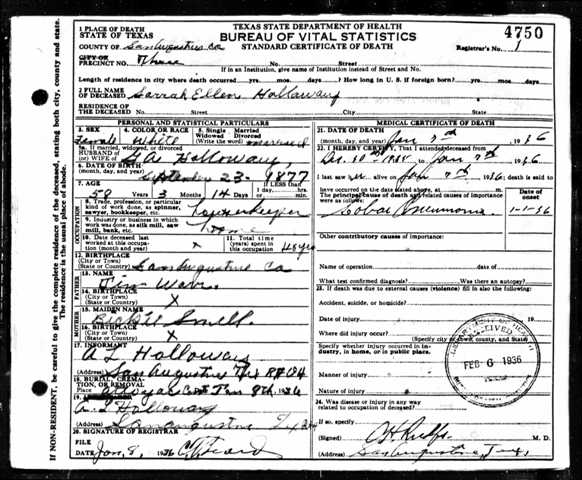 TEXAS STATE DEPARTMENT OF HEALTH
BUREAU OF VITAL STATISTICS
STANDARD CERTIFICATE OF DEATH
4750
Registrar's No. 1
1 PLACE OF DEATH
STATE OF TEXAS
COUNTY OF San Augustine Co
CITY OR
PRECINCT NO. Three
No. Street
If in an Institution, give name of Institution instead of Street and No.
Length of residence in city where death occurred yrs. mos. days. ? How long in U. S. if foreign born? yrs. mos. days
2 FULL NAME
OF DECEASED Sarrah Ellen Holloway
RESIDENCE OF
THE DECEASED Street City County State
PERSONAL AND STATISTICAL PARTICULARS
3. SEX
Female
4. COLOR OR RACE
White
5. Single Married
Widowed Divorced
(write the word) married
5a. If married, widowed, or divorced
HUSBAND OF
(or) WIFE OF
Holloway
6. DATE OF BIRTH
(month, day, year) September 23 - 1877
7. AGE
58 Years 3 Months 14 Days
IF LESS than
1 day
hrs. min.
8. Trade, profession, or particular
kind of work done, as spinner,
sawyer, bookkeeper, etc. housekeeper
9. Industry or business in which
work was done, as silk mill, saw
mill, bank, etc. Home
10. Date deceased last
worked at this occupation
(month and year) x
11. Total time
(years) spent in
this occupation
12. BIRTHPLACE
(City or Town)
(State or Country) San Augustine Co
FATHER
13. NAME
Jim Warr
14. BIRTHPLACE
(State or Country) X
MOTHER
15. MAIDEN NAME
Smelt
16. BIRTHPLACE
(State or Country) X
17. INFORMANT
A L Holloway
(Address) San Augustine Tex
18. BURIAL, CREMATION,
OR REMOVAL
Place
Date Jan 8th 1936
A. L Holloway
(Address) San augustine Tex
20. SIGNATURE OF REGISTRAR
FILE
DATE Jan, 8, 1936
MEDICAL PARTICULARS
21. DATE OF DEATH
(month, day, year) Jan 7th 1936
22. I HEREBY CERTIFY, that I attended deceased from
to Jan 7th 1936
I last saw alive on Jan 7th 1936; death is said to
have occurred on the date stated above, at m.
The principal cause of death and related causes of
importance were as follows:
Date of
onset
Lobar Pneumonia 1-1-36
Other contributory causes of importance:
Name of operation date of
What test confirmed diagnosis? Was there an autopsy?
23. If death was due to external causes (violence) fill in also the following:
Accident, suicide, or homicide?
Date of injury 19
Where did injury occur?
(Specify city or town, county, and State)
Specify whether injury occurred in
industry, in home, or in public place.
Manner of injury
Nature of injury
24. Was disease or injury in any way
related to occupation of deceased?
If so, specify
(Signed) M. D.
(Address) San Augustine, Tex.
RECEIVED
FEB 6 1936
If NON-RESIDENT, be careful to give the complete residence of the deceased, stating both city, county and state.
The residence is the usual place of abode.